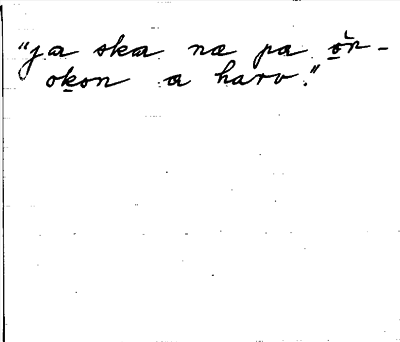 "ja ska na pa ǒ̲r-
ok̲on a harv."